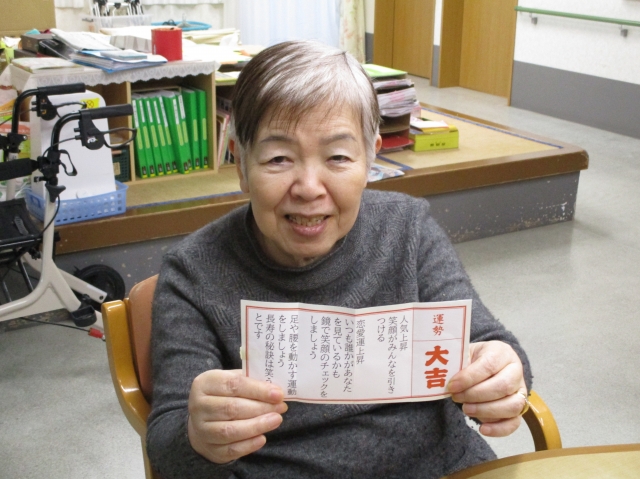 運勢
大吉
人気上昇
笑顔がみんなを引き
つける
恋愛運上昇
いつも誰かがあなた
を見ているかも
鏡で笑顔のチェックを
しましょう
足や腰を動かす運動
をしましょう
長寿の秘訣は笑う
とです